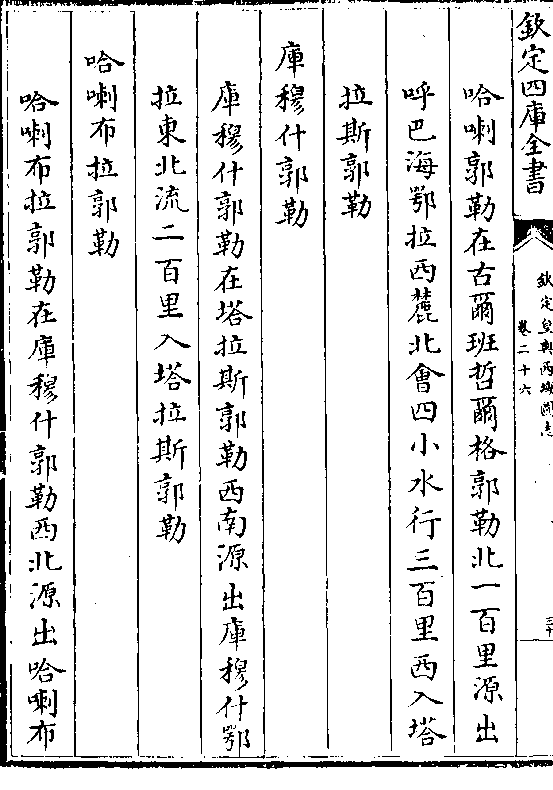 欽定四庫全書
欽定皇輿西域圖志
卷二十六
三十
哈喇郭勒在古爾班哲爾格郭勒北一百里源出
呼巴海鄂拉西麓北會四小水行三百里西入塔
拉斯郭勒
庫穆什郭勒
庫穆什郭勒在塔拉斯郭勒西南源出庫穆什鄂
拉東北流二百里入塔拉斯郭勒
哈喇布拉郭勒
哈喇布拉郭勒在庫穆什郭勒西北源出哈喇布